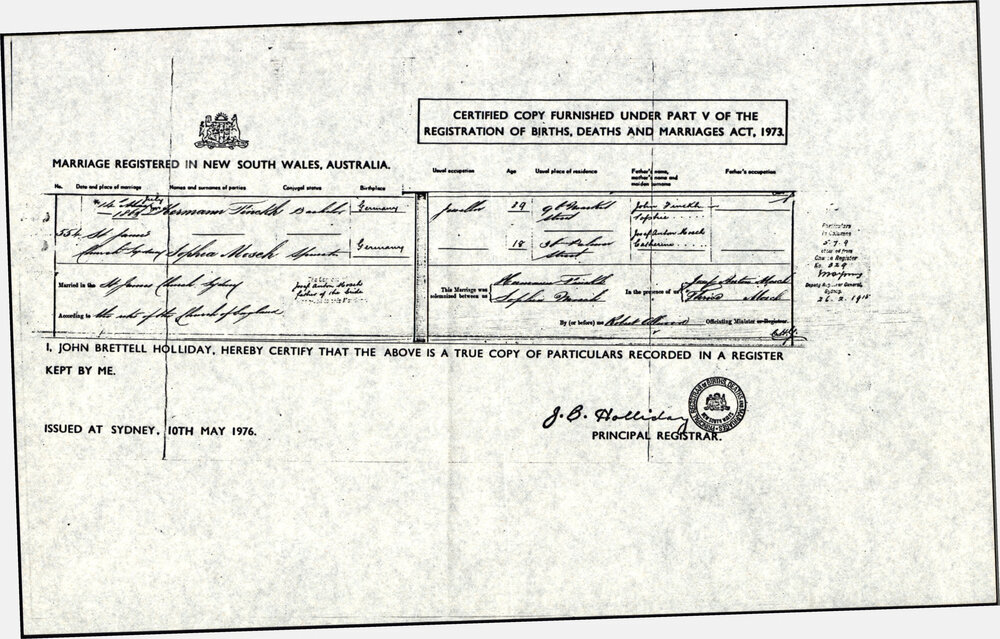 CERTIFIED COPY FURNISHED UNDER PART V OF THE
REGISTRATION OF BIRTHS, DEATHS AND MARRIAGES ACT, 1973.
MARRIAGE REGISTERED IN NEW SOUTH WALES, AUSTRALIA.
No. Date and place of marriage Names and surnames of parties Conjugal status Birthplace
Usual occupation Age Usual place of residence Father's name, mother's name and maiden surname Father's occupation
Hermann Finckh Bachelor Germany
Jeweller 29 Market Street John Finckh
Sophie
554 St James
Church Sydney Sophia Mosch Spinster Germany
18 Palmer Street Josef Anton Mosch
Catherine
Married in the St James Church Sydney
Josef Anton Mosch
father of the bride
According to the rites of the Church of England
This Marriage was solemnized between us Hermann Finckh
Sophia Mosch
In the presence of us Josef Anton Mosch
Mosch
By (or before) me Robert Officiating Minister or Registrar.
Particulars
in Columns
5.7.9
from
Register
No. 329
Deputy Registrar General,
Sydney.
26.2.1915
I, JOHN BRETTELL HOLLIDAY, HEREBY CERTIFY THAT THE ABOVE IS A TRUE COPY OF PARTICULARS RECORDED IN A REGISTER
KEPT BY ME.
J. B. Holliday
ISSUED AT SYDNEY, 10TH MAY 1976.
PRINCIPAL REGISTRAR.